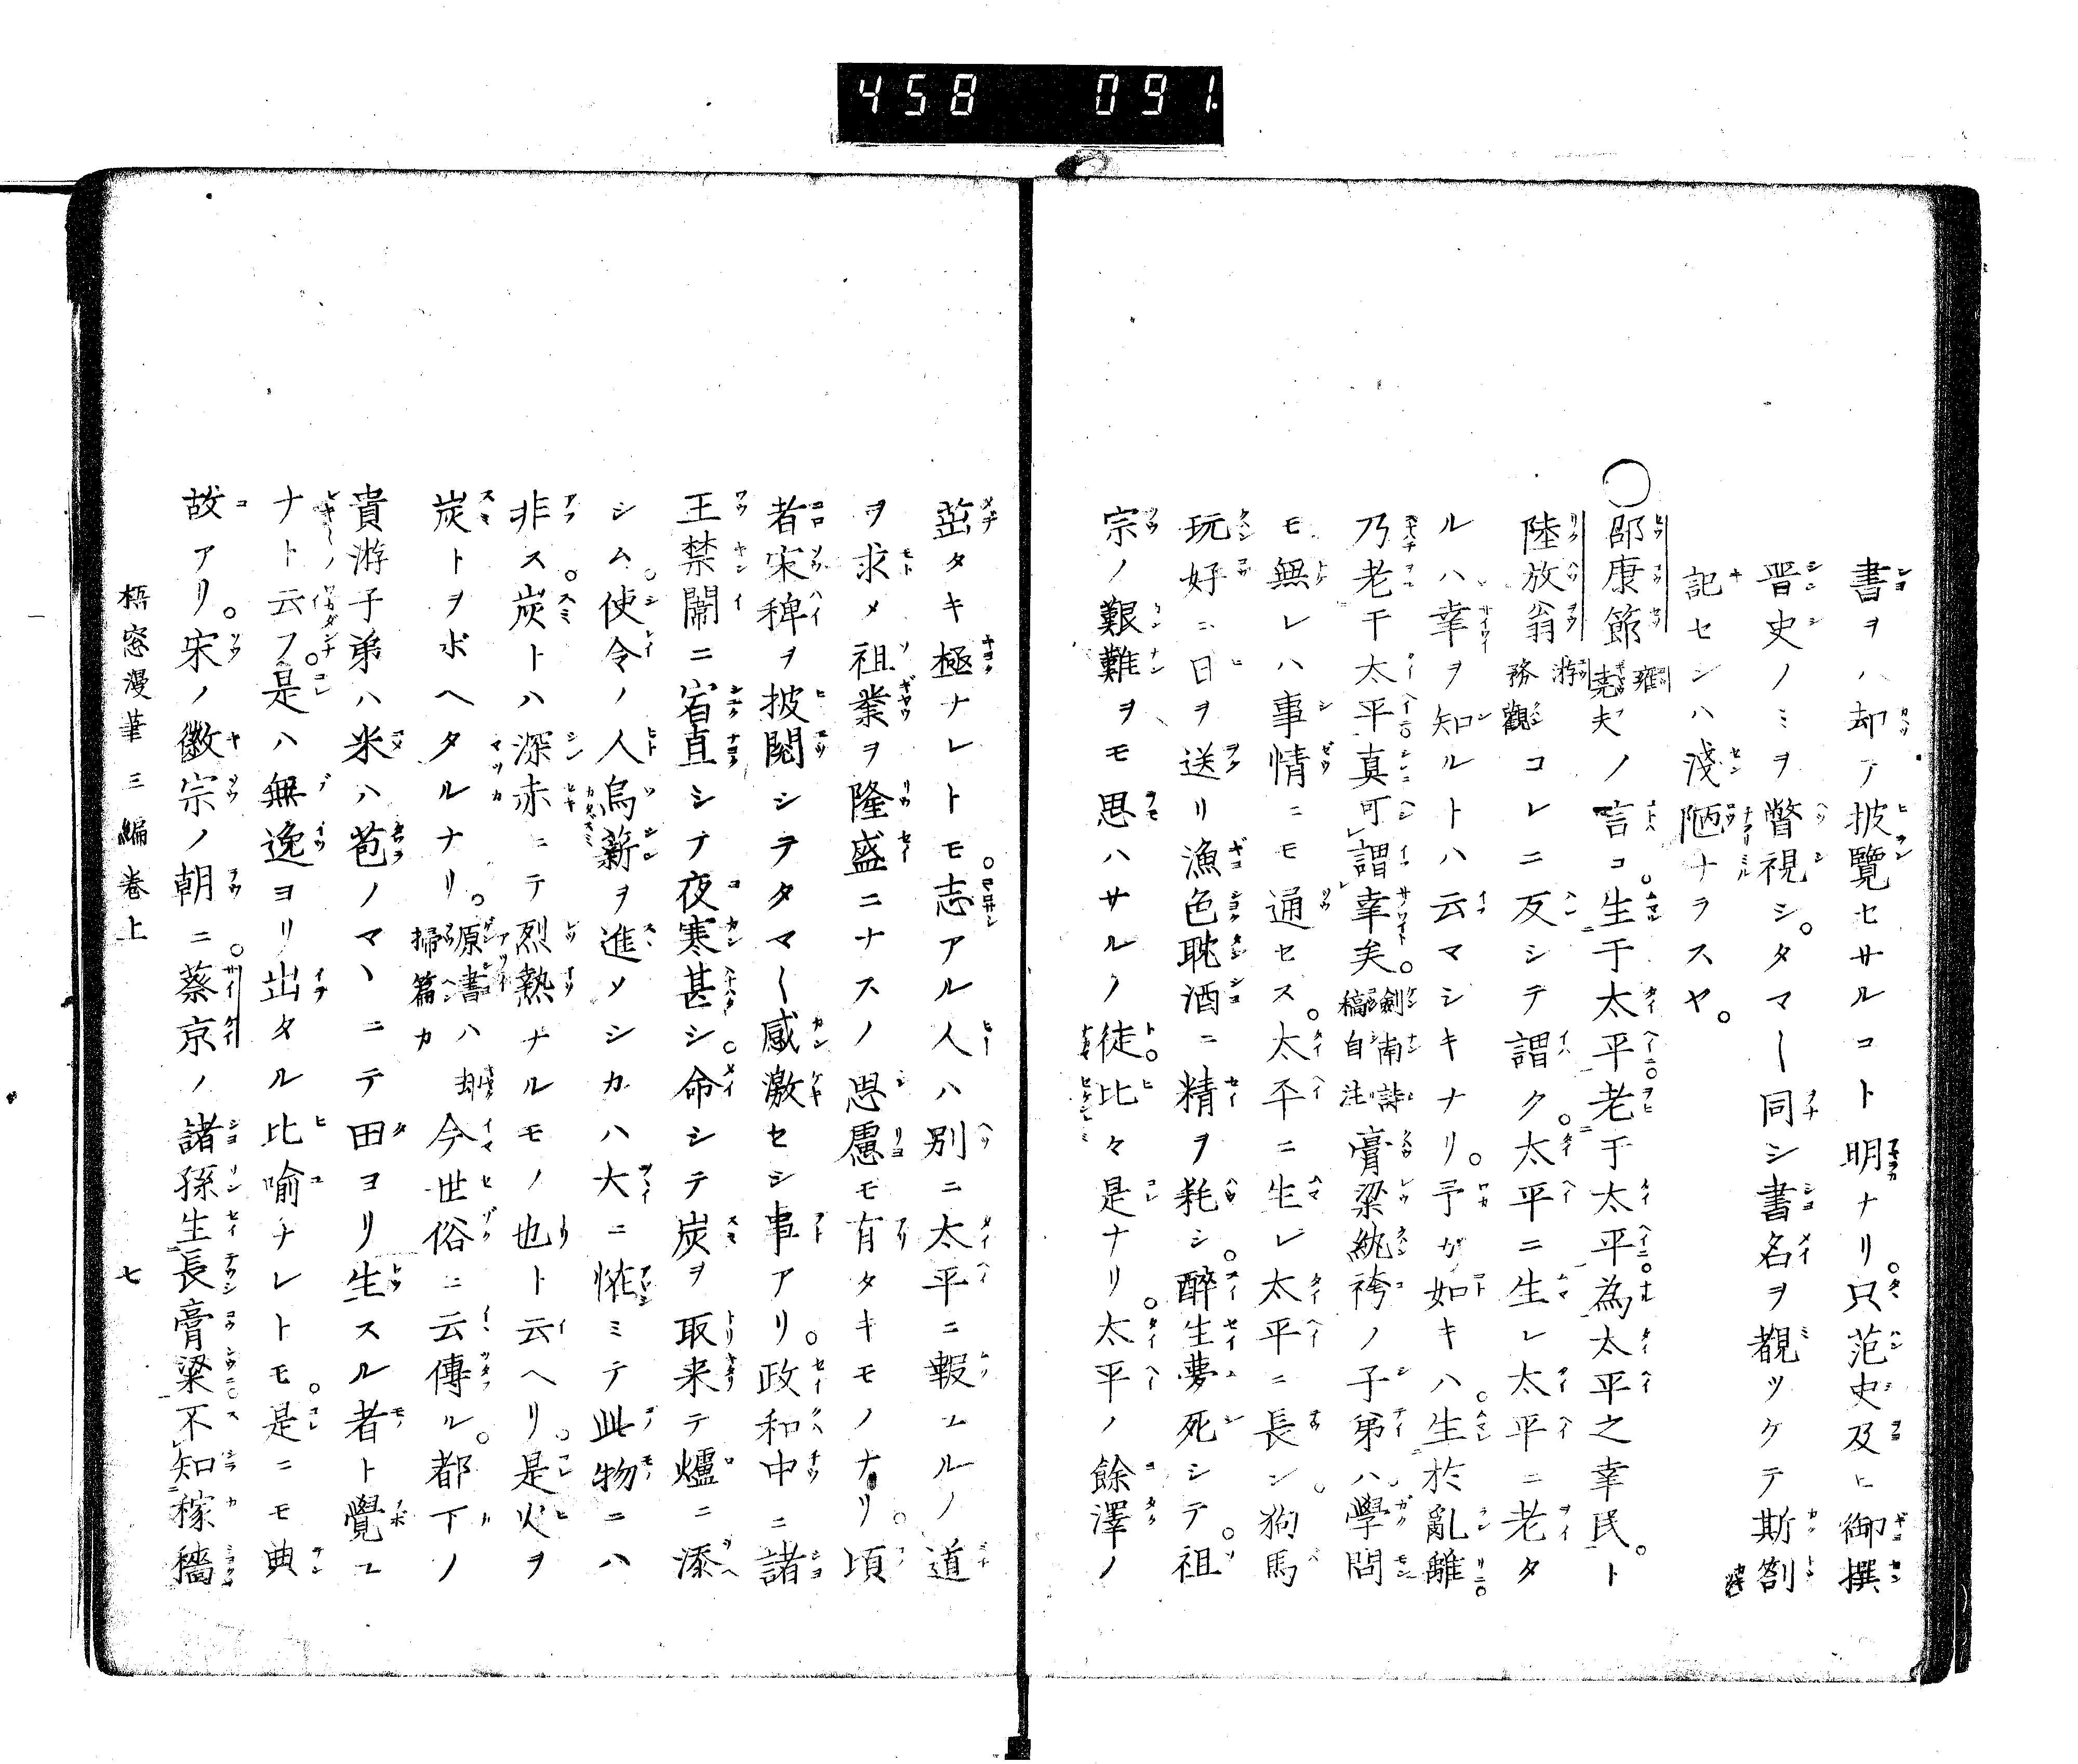 458 091
書ヲハ却テ披覽セサルコト明ナリ。只范史及ヒ御撰
晋史ノミヲ瞥視シ。タマ〱同シ書名ヲ覩ツケテ斯劄
記セシハ淺陋ナラスヤ。
○邵康節雍堯夫ノ言コ。生于太平老于太平為太平之幸民。ト
陸放翁游務觀コレニ反シテ謂ク。太平ニ生レ太平ニ老タ
ルハ幸ヲ知ルトハ云マシキナリ。予ガ如キハ。生於亂離
乃老于太平真可謂幸矣。劍南詩稿自注膏梁紈袴ノ子弟ハ學問
モ無レハ事情ニモ通セス。太平ニ生レ太平ニ長シ。狗馬
玩好ニ日ヲ送リ漁色耽酒ニ精ヲ耗シ。醉生夢死シテ。祖
宗ノ艱難ヲモ思ハサルノ徒比々是ナリ。太平ノ餘澤ノ
茁タキ極ナレトモ。志アル人ハ別ニ太平ニ報ユルノ道
ヲ求メ祖業ヲ隆盛ニナスノ思慮モ有タキモノナリ。頃
者宋稗ヲ披閱シテタマ〱感激セシ事アリ。政和中ニ諸
王禁闈ニ宿直シテ夜寒甚シ。命シテ炭ヲ取来テ爐ニ添
シム。使令ノ人烏薪ヲ進ソシカハ大ニ恠ミテ此物ニハ
非ス。炭トハ深赤ニテ烈熱ナルモノ也ト云ヘリ。是火ヲ
炭トヲボヘタルナリ。原書ハ却掃篇カ今世俗ニ云傳ル。都下ノ
貴游子弟ハ米ハ苞ノマヽニテ田ヨリ生スル者ト覺ユ
ナト云フ。是ハ無逸ヨリ出タル比喻ナレトモ。是ニモ典
故アリ。宋ノ徽宗ノ朝ニ。蔡京ノ諸孫生長膏粱不知稼穡
梧窓漫筆三編卷上 七